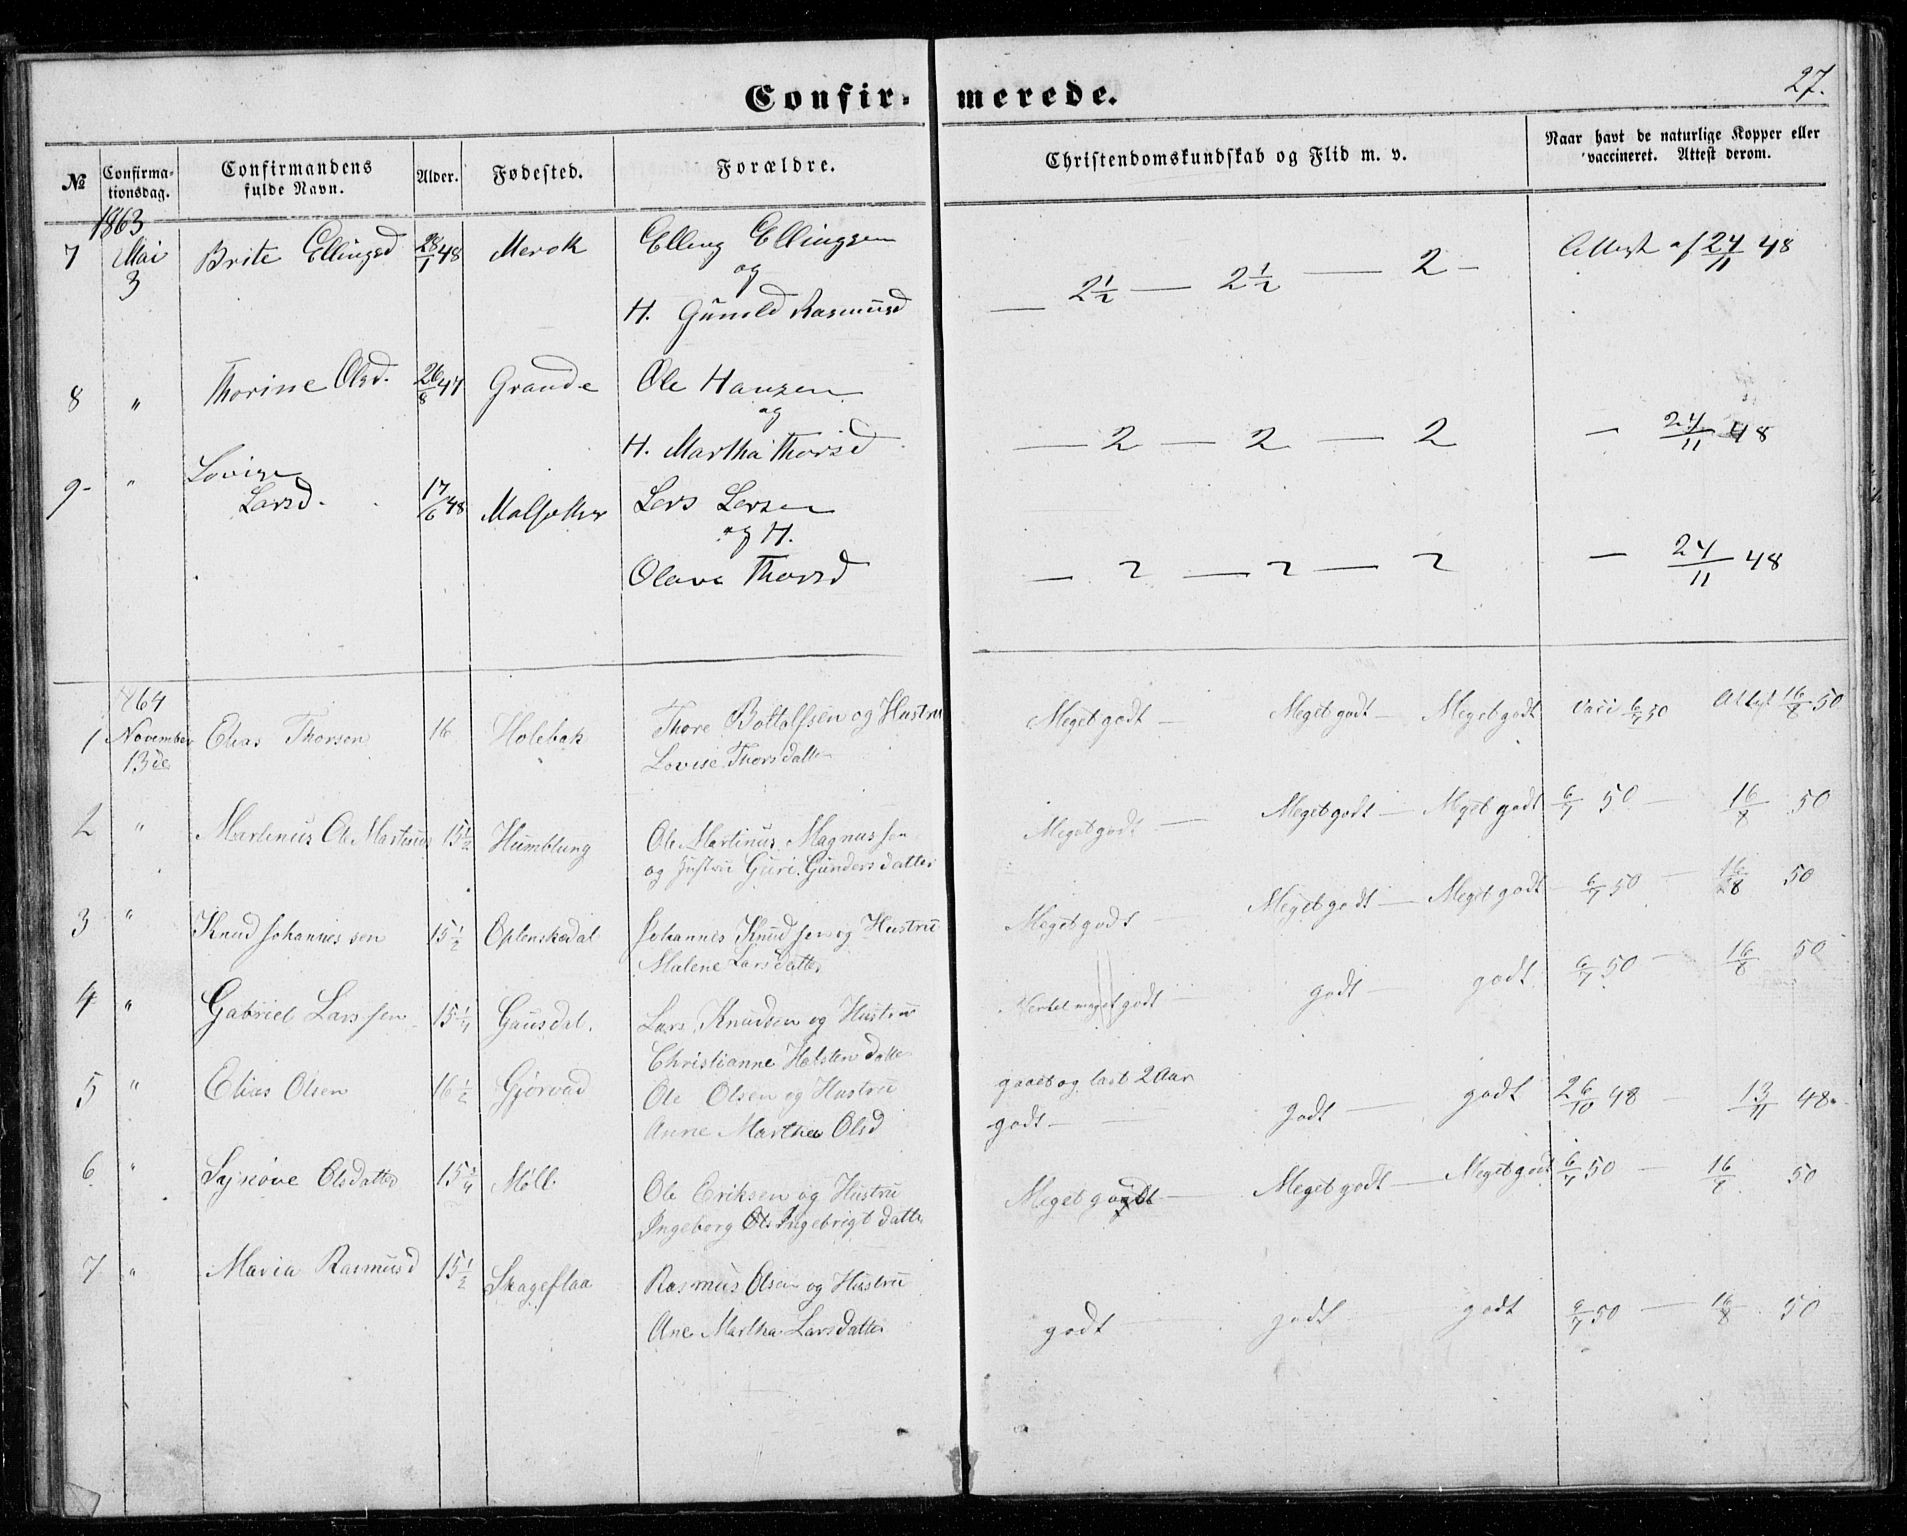 27.
Confir- merede.
№ Confirma-tionsdag. Confirmandens fulde Navn. Alder. Fødested. Forældre. Christendomskundskab og Flid m. v. Naar havt de naturlige Kopper eller vaccineret. Attest derom.
1863
7 Mai 3 Brite Ellingsd 28/1 48 Merok Elling Ellingsen — 2½ — 2½ — 2 — Attest af 24/11 48
og
H. Gunild Rasmusd
8 " Thorine Olsd. 26/8 47 Grande Ole Hansen
og
H. Martha Thorsd — 2 — 2 — 2 — 24/11 48
9 " Lovise
Larsd. 17/6 48 Lars Larsen
og H.
Olave Thorsd — 2 — 2 — 2 — 24/11 48
1 1864 November 13de Elias Thorsen 16 Holebak Thore Bottolfsen og Hustru Meget godt — Meget godt — Meget godt Vacc 6/7 50 Attest 16/8 50
Lovise Thorsdatter
2 " Martinus Ole Martinus 15½ Humblung Ole Martinus Magnussen Meget godt — Meget godt — Meget godt 6/7 50 — 16/8 50
og Hustru Guri Gundersdatter
3 " Knud Johannessen 15½ Oplenskedal Johannes Knudsen og Hustru Meget godt — Meget godt — Meget godt — 6/7 50 — 16/8 50
Malene Larsdatter
4 " Gabriel Larssen 15¼ Gausdal. Lars Knudsen og Hustru meget godt — godt — godt 6/7 50 — 16/8 50
Christianne Halstendatter
5 " Elias Olsen 16½ Gjørvad Ole Olsen og Hustru gaaet og læst 2 Aar
Anne Martha Olsd godt — godt — godt 26/10 48 — 13/11 48.
6 " Synnöve Olsdatter 15¾ Möll Ole Eriksen og Hustru Meget godt — Meget godt — Meget godt 6/7 50 — 16/8 50
Ingeborg Ingebrigtdatter
7 " Maria Rasmusd 15½ Skageflaa Rasmus Olsen og Hustru
Ane Martha Larsdatter godt godt godt 6/7 50 — 16/8 50